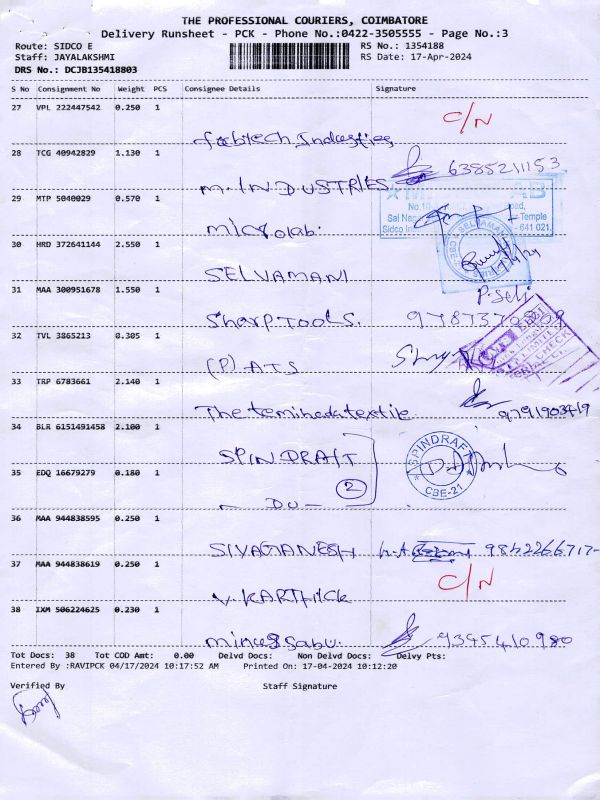 THE PROFESSIONAL COURIERS, COIMBATORE
Delivery Runsheet - PCK - Phone No.:0422-3505555 - Page No.:3
Route: SIDCO E RS No.: 1354188
Staff: JAYALAKSHMI RS Date: 17-Apr-2024
DRS No.: DCJB135418803
S No Consignment No Weight PCS Consignee Details Signature
27 VPL 222447542 0.250 1 C/N
fabtech Industries
28 TCG 40942829 1.130 1 6385211153
M. INDUSTRIES
29 MTP 5040029 0.570 1
microlab.
30 HRD 372641144 2.550 1
SELVAMANI
31 MAA 300951678 1.550 1 P. Selvi
Sharp Tools.
32 TVL 3865213 0.305 1
(P) ATS
33 TRP 6783661 2.140 1
9791903419
34 BLR 6151491458 2.100 1
SPINDRAFT SPINDRAFT
35 EDQ 16679279 0.180 1 CBE-21
- DU - 2
36 MAA 944838595 0.250 1
SIVAGANESH
37 MAA 944838619 0.250 1 C/N
V. KARTHICK
38 IXM 506224625 0.230 1
9395410980
Tot Docs: 38 Tot COD Amt: 0.00 Delvd Docs: Non Delvd Docs: Delvy Pts:
Entered By :RAVIPCK 04/17/2024 10:17:52 AM Printed On: 17-04-2024 10:12:20
Verified By Staff Signature